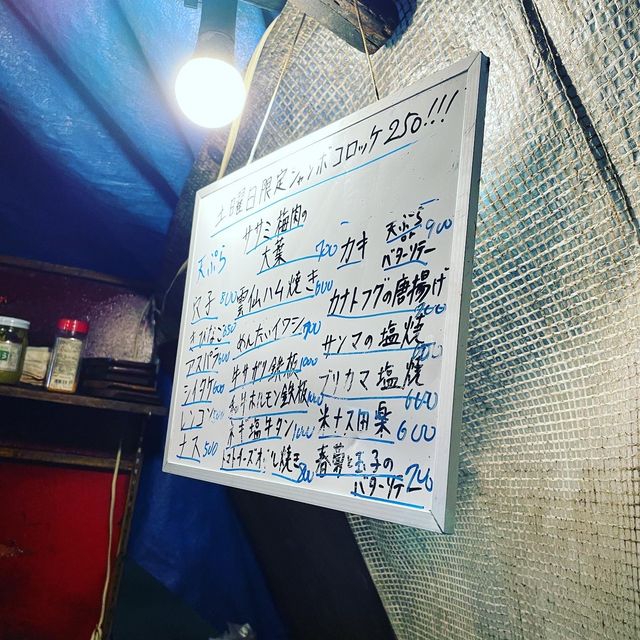 土曜日限定ジャンボコロッケ250!!!
天ぷら
穴子 800
きびなご 350
アスパラ
シイタケ
レンコン
ナス 500
ササミ梅肉の
大葉 700
雲仙ハム焼き 600
めんたいイワシ 700
牛サガリ鉄板 1000
ホルモン鉄板
ネギ塩牛タン 1000
トマトチーズオーブン焼き 800
カキ
天ぷら
or
バターソテー 900
カナトフグの唐揚げ
サンマの塩焼
ブリカマ塩焼 600
米ナス田楽 600
春菊と玉子の
バターソテー 700